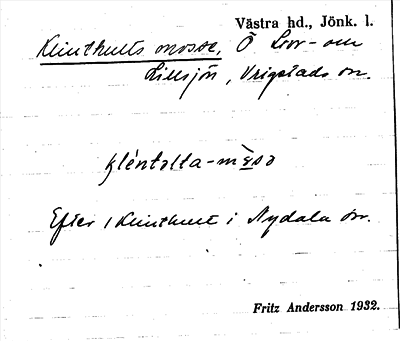 Västra hd., Jönk. l.
Klinthults mosse, Ö Sor- om
Lillsjön, Vrigstads sn.
kléntølta-mòsə
Efter 1 Klinthult i Nydala sn.
Fritz Andersson 1932.